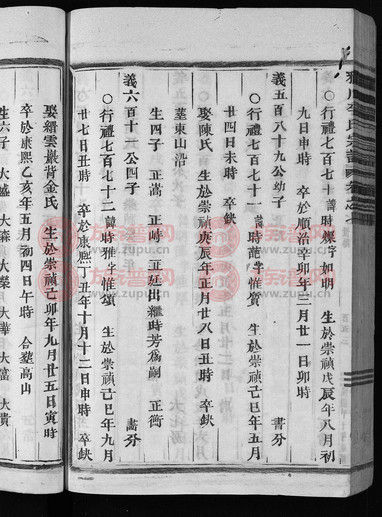 ○行禮七百七十 諱時燦字如明 生於崇禎戊辰年八月初
九日申時 卒於順治辛卯年三月廿一日卯時
義五百八十九公幼子 書分
○行禮七百七十一 諱時范字惟賓 生於崇禎己巳年五月
廿四日未時 卒缺
娶陳氏 生於崇禎庚辰年正月廿八日丑時 卒缺
塟東山沿
生四子 正嵩 正時 正廷出繼時芳為嗣 正衡
義六百十一公四子 書分
○行禮七百七十二 諱時雅字惟頌 生於崇禎己巳年九月
廿七日丑時 卒於康熙 丑年十月十二日申時 卒缺
娶縉雲嚴背金氏 生於崇禎己卯年九月廿五日寅時
卒於康熙乙亥年五月初四日午時 合塟高山
生六子 大盛 大森 大榮 大華 大富 大貴
族譜网
www.zupu.cn